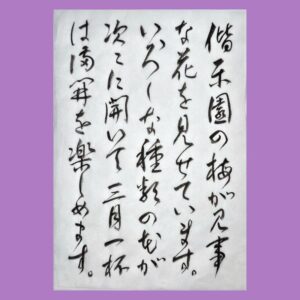 偕楽園の梅が見事
な花を見せています。
いろいろな種類の花が
次々に開いて三月一杯
は満開を楽しめます。